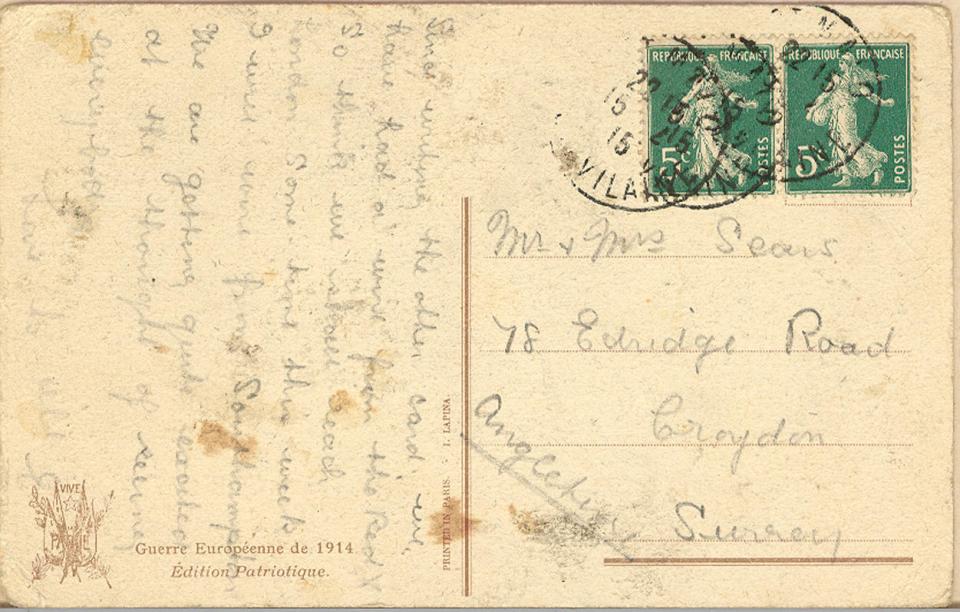 Since writing the other card we
have had a wire from the Red X
So think we shall reach
London Some time this week
I will wire from Southampton
We are getting quite excited
at the thought of seeing
everybody
Love to all
Mr & Mrs Sears
78 Edridge Road
Croydon
Surrey
Angleterre
REPUBLIQUE FRANÇAISE
5c
POSTES
REPUBLIQUE FRANÇAISE
5c
POSTES
VILAINE
PRINTED IN PARIS. I. LAPINA.
VIVE
PATRIE
Guerre Européenne de 1914
Édition Patriotique.